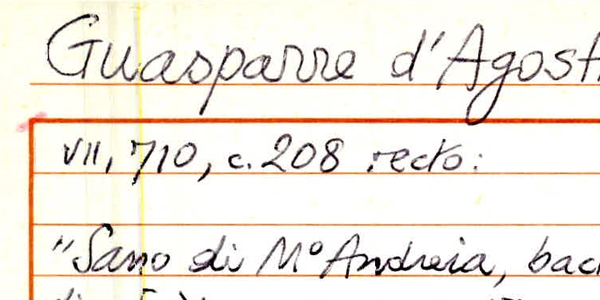 Guasparre d'Agost
VII, 710, c. 208 recto:
"Sano di M° Andreia, bac